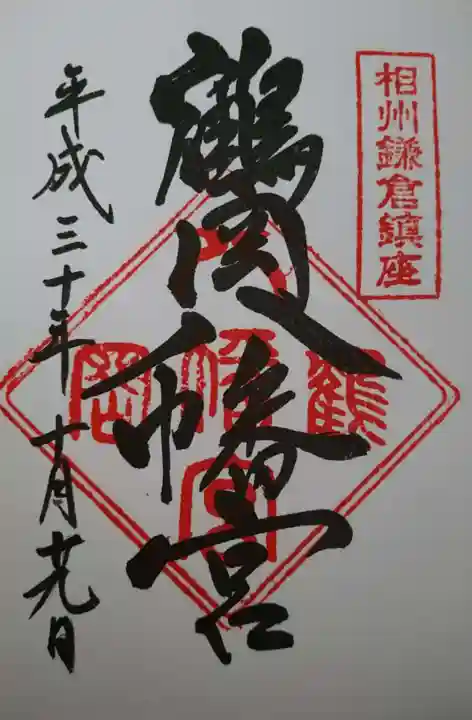 相州鎌倉鎮座
鶴岡八幡宮
鶴
八幡宮
岡
平成三十年十月廿九日